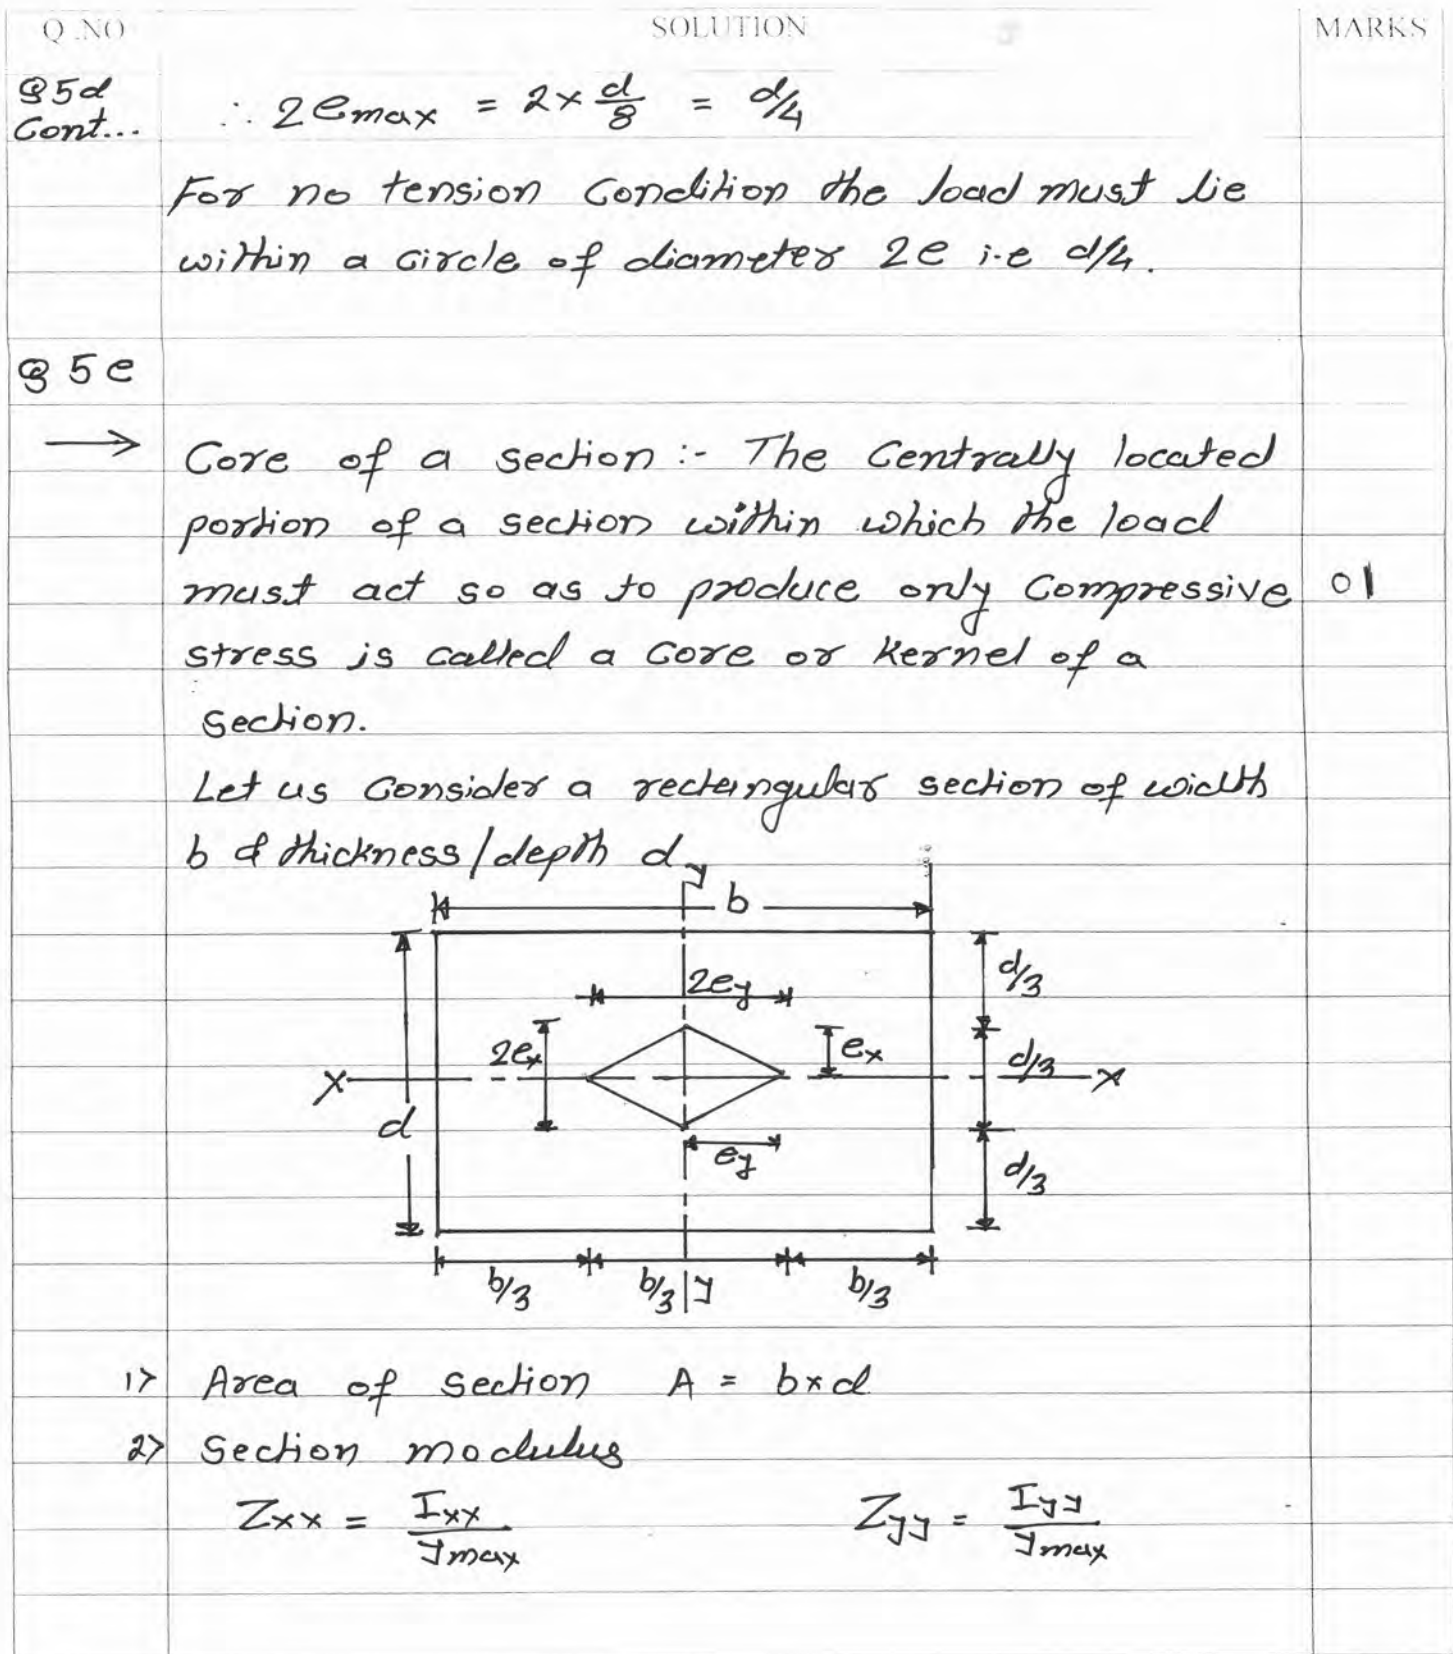 Q.NO SOLUTION MARKS
Q5d ∴ 2emax = 2 × d/8 = d/4
Cont...
For no tension Condition the load must lie
within a circle of diameter 2e i.e d/4.
Q 5 e
→ Core of a section :- The Centrally located
portion of a section within which the load
must act so as to produce only Compressive 01
stress is called a Core or Kernel of a
Section.
Let us Consider a rectangular section of width
b & thickness/depth d
y
b
2ey d/3
2ex ex
X d/3 X
d
ey d/3
b/3 b/3 y b/3
1> Area of section A = b×d
2> Section modulus
Zxx = Ixx/ymax Zyy = Iyy/ymax